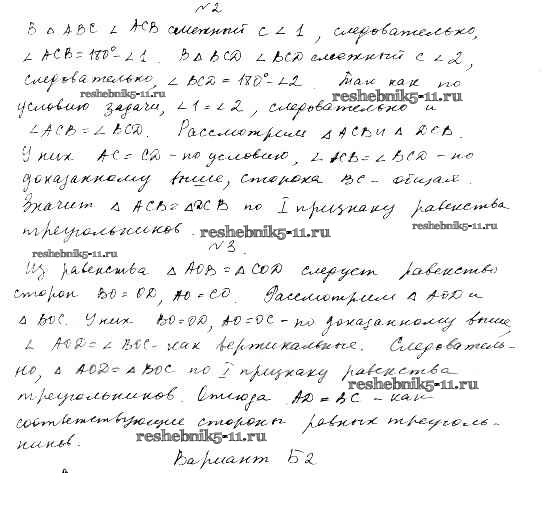 №2
В △ ABC ∠ ACB смежный с ∠1, следовательно,
∠ACB = 180° - ∠1. В △ BCD ∠BCD смежный с ∠2,
следовательно, ∠ BCD = 180° - ∠2. Так как по
reshebnik5-11.ru
условию задачи, ∠1 = ∠2, следовательно и
∠ACB = ∠BCD. Рассмотрим △ ACB и △ DCB.
У них AC = CD - по условию, ∠ ACB = ∠ BCD - по
доказанному выше, сторона BC - общая.
Значит △ ACB = △DCB по I признаку равенства
треугольников. reshebnik5-11.ru reshebnik5-11.ru
№3.
reshebnik5-11.ru
Из равенства △ AOB = △ COD следует равенство
сторон BO = OD, AO = CO. Рассмотрим △ AOD и
△ BOC. У них BO = OD, AO = OC - по доказанному выше,
∠ AOD = ∠ BOC - как вертикальные. Следователь-
но, △ AOD = △ BOC по I признаку равенства
reshebnik5-11.ru
треугольников. Отсюда AD = BC - как
соответствующие стороны равных треуголь-
ников. reshebnik5-11.ru
Вариант Б2